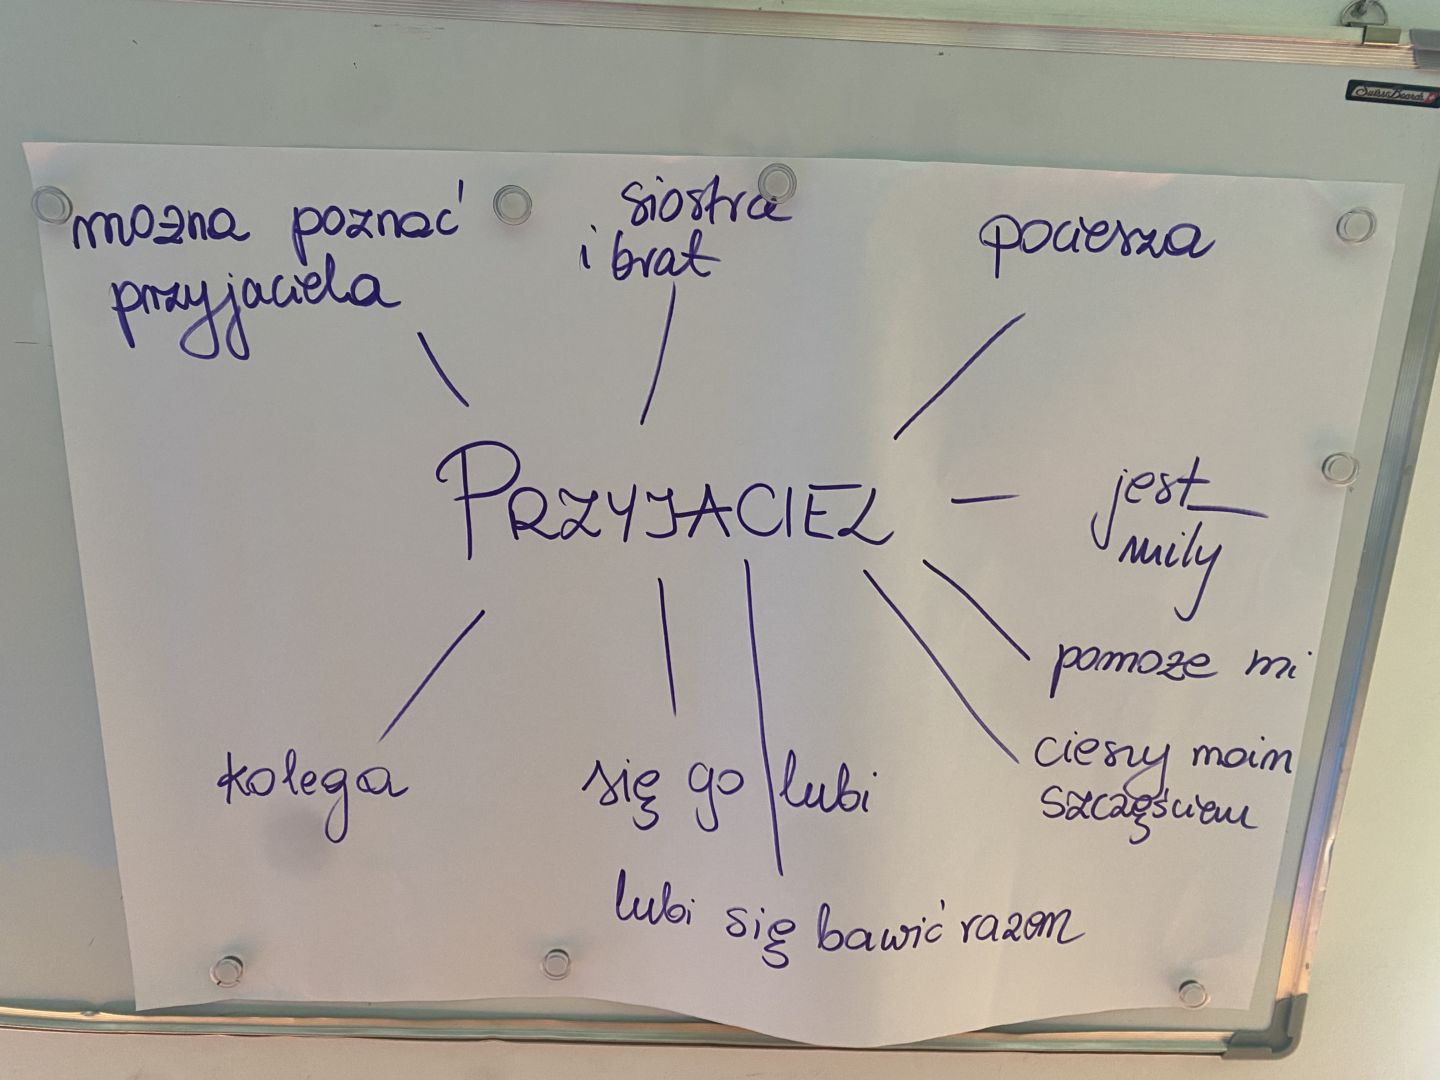 można poznać
przyjaciela
siostra
i brat
pociesza
PRZYJACIEL
jest
miły
pomoże mi
cieszy moim
szczęściem
kolega
się go lubi
lubi się bawić razem